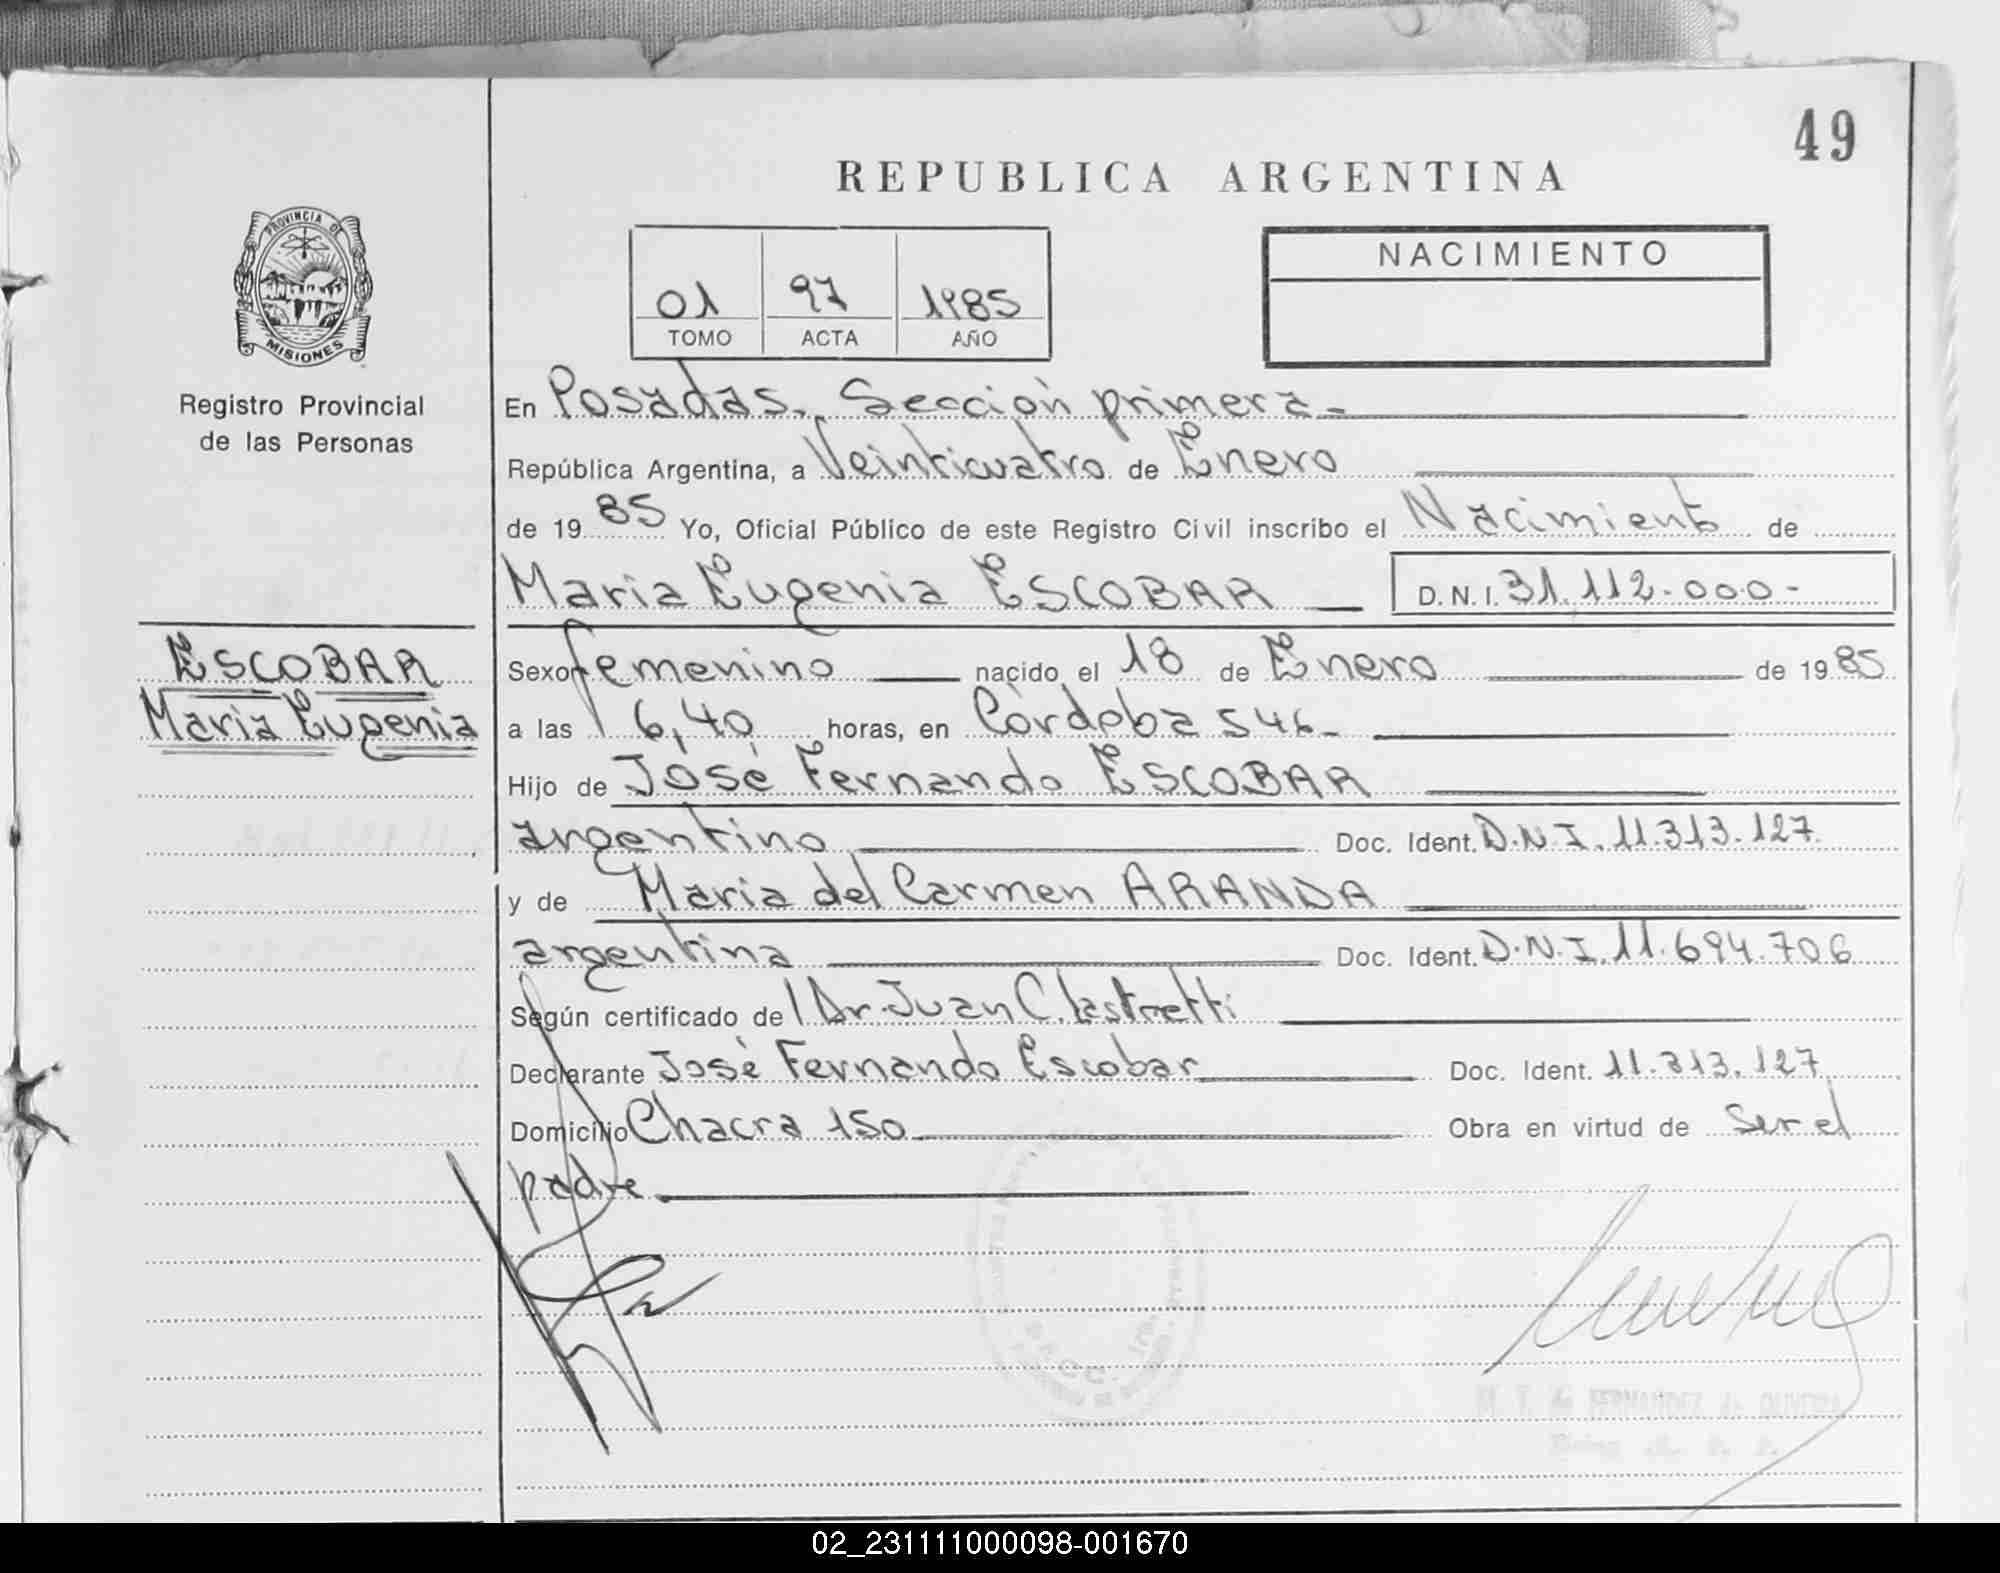 49
REPUBLICA ARGENTINA
PROVINCIA DE
MISIONES
Registro Provincial
de las Personas
01 97 1985
TOMO ACTA AÑO
NACIMIENTO
En Posadas. Sección primera-
República Argentina, a Veinticuatro de Enero
de 19 85 Yo, Oficial Público de este Registro Civil inscribo el Nacimiento de
Maria Eugenia ESCOBAR D.N.I. 31.112.000-
ESCOBAR
Maria Eugenia
Sexo femenino nacido el 18 de Enero de 19 85
a las 6,40 horas, en Córdoba 546-
Hijo de José Fernando ESCOBAR
argentino Doc. Ident. D.N.I. 11.313.127
y de Maria del Carmen ARANDA
argentina Doc. Ident. D.N.I. 11.694.706
Según certificado de Dr. Juan C. Lastretti
Declarante José Fernando Escobar Doc. Ident. 11.313.127
Domicilio Chacra 150 Obra en virtud de Ser el
padre
M. T. de FERNANDEZ de OLIVEIRA
02_231111000098-001670